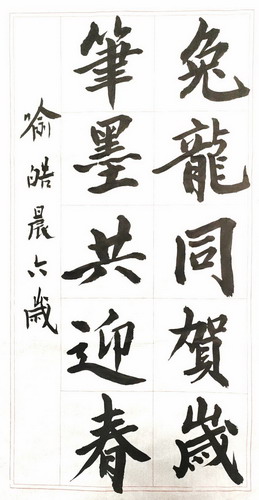 兔龍同賀歲
筆墨共迎春
喻皓晨六歲